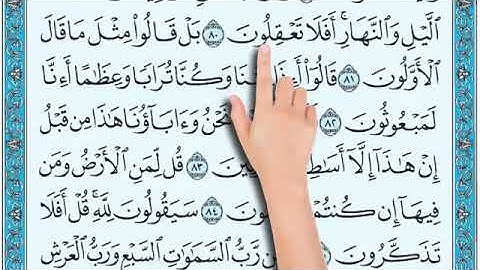 ٱلَّيْلِ وَٱلنَّهَارِۚ أَفَلَا تَعْقِلُونَ ٨٠ بَلْ قَالُوا۟ مِثْلَ مَا قَالَ
ٱلْأَوَّلُونَ ٨١ قَالُوٓا۟ وَكُنَّا تُرَابًا وَعِظَٰمًا أَءِنَّا
لَمَبْعُوثُونَ ٨٢ وَءَابَآؤُنَا هَٰذَا مِن قَبْلُ
إِنْ هَٰذَآ إِلَّآ ٨٣ قُل لِّمَنِ ٱلْأَرْضُ وَمَن
فِيهَآ إِن ٨٤ سَيَقُولُونَ لِلَّهِۚ قُلْ أَفَلَا
تَذَكَّرُونَ رَّبُّ ٱلسَّمَٰوَٰتِ ٱلسَّبْعِ وَرَبُّ ٱلْعَرْشِ